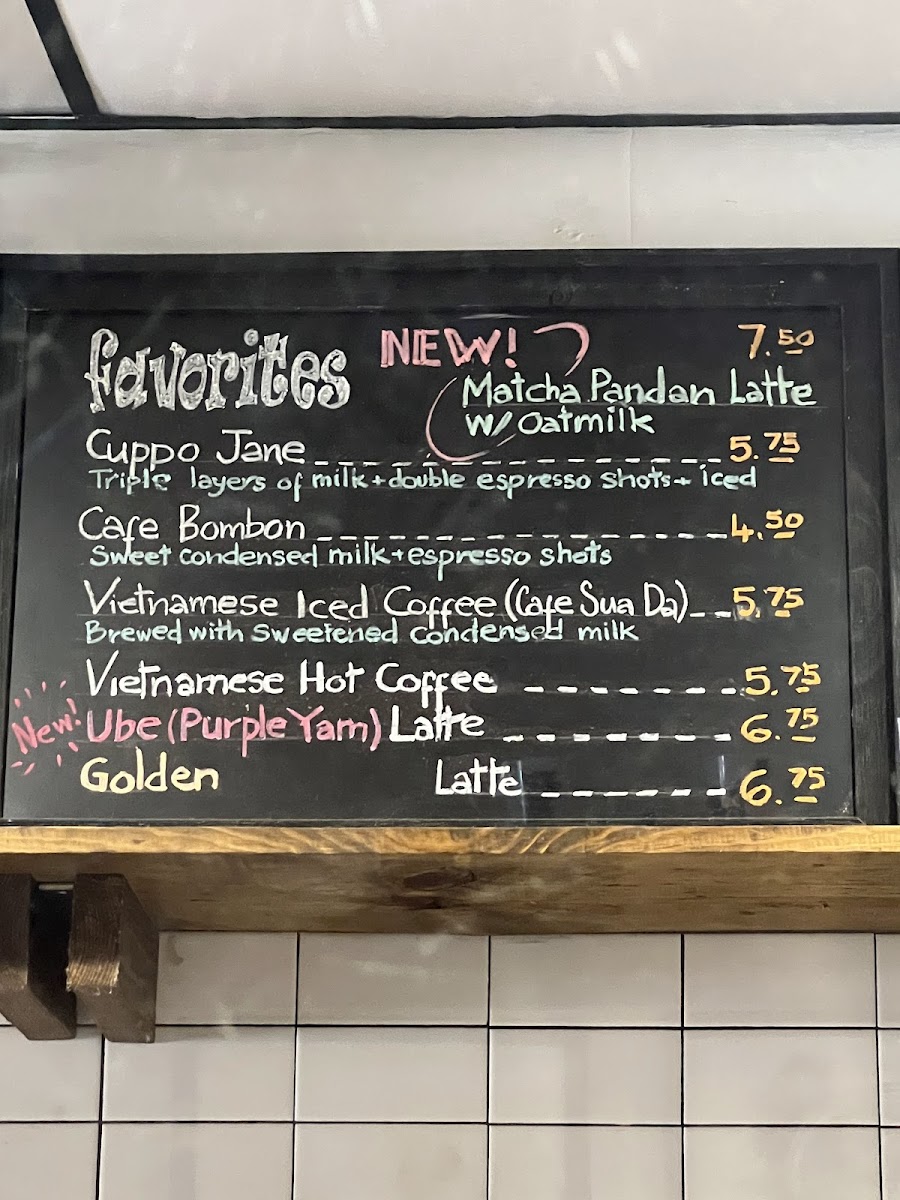 favorites NEW! 7.50
Matcha Pandan Latte
w/ Oatmilk
Cuppo Jane 5.75
Triple layers of milk + double espresso shots + iced
Cafe Bombon 4.50
Sweet condensed milk + espresso shots
Vietnamese Iced Coffee (Cafe Sua Da) 5.75
Brewed with sweetened condensed milk
Vietnamese Hot Coffee 5.75
New! Ube (Purple Yam) Latte 6.75
Golden Latte 6.75